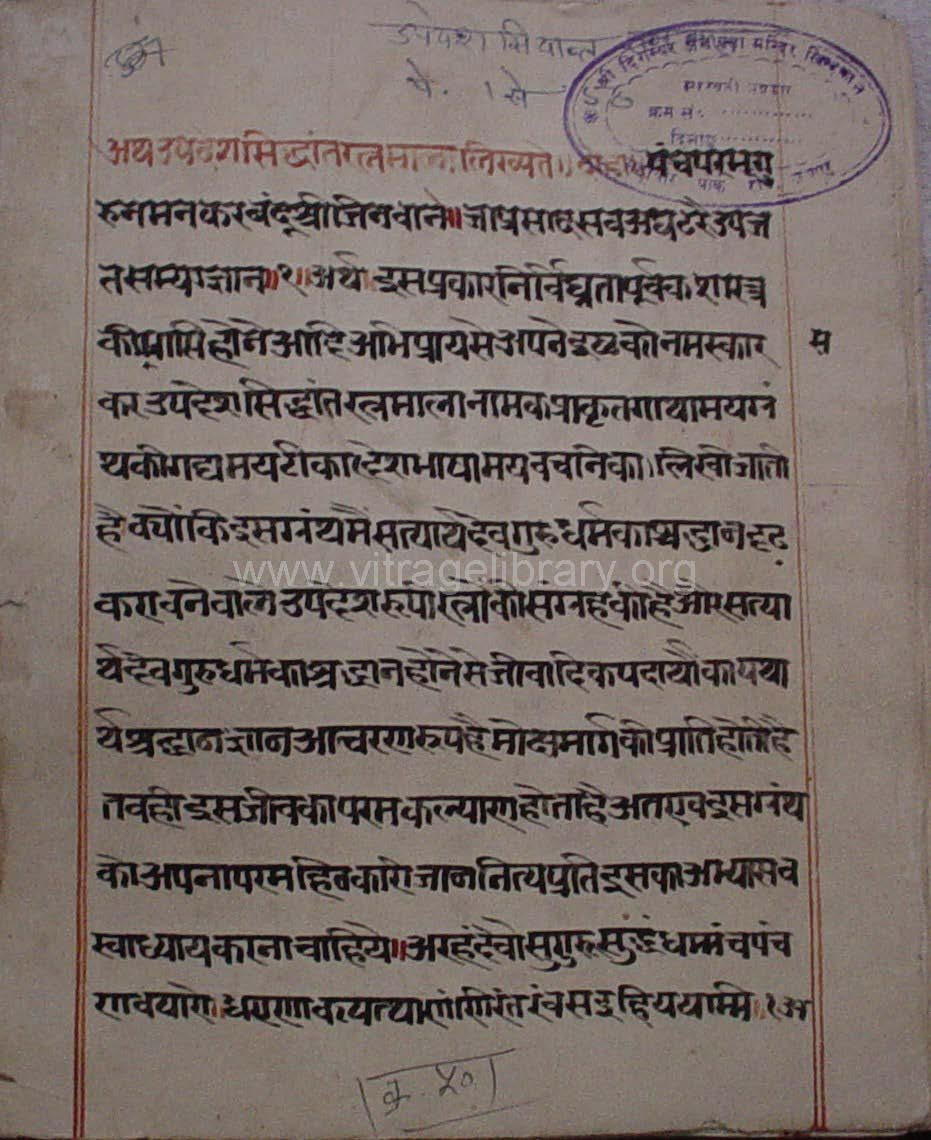 उपदेश सिद्धान्त
अथ उपदेशसिद्धांतरत्नमाला लिख्यते।। दोहा।। पंचपरमगु
रुनमनकरबंदूश्रीजिनवान॥ जाप्रसादसबअघटरैउपज
तसम्यग्ज्ञान॥१॥अर्थ॥इसप्रकारनिर्विघ्नतापूर्वकशास्त्र
कीप्राप्तिहोनेआदिअभिप्रायसेअपनेइष्टकोनमस्कार
कर उपदेशसिद्धांतरत्नमालानामकप्राकृतगाथामयग्रं
थकीगद्यमयटीकादेशभाषामयवचनिका।लिखीजाती
हैक्योंकिइसग्रंथमैंसत्यार्थदेवगुरुधर्मकाश्रद्धानदृढ
करावनेवालेउपदेशरुपीरत्नोंकोसंग्रहकीहैऔरसत्या
र्थदेवगुरुधर्मकाश्रद्धानहोनेसेजीवादिकपदार्थोंकायथा
र्थश्रद्धानज्ञानआचरणरुपहैमोक्षमार्गकीप्राप्तिहोतीहै
तबहीइसजीवकापरमकल्याणहोताहैअतएवइसग्रंथ
कोअपनापरमहितकारीजाननित्यप्रतिइसकाअभ्यासव
स्वाध्यायकरनाचाहिये॥अरहंदेवोसुगुरुसुद्धंधम्मंचपंच
णवयारो।धण्णाणकयत्थाणंणिरंतरंवसइहिययम्मि॥१॥अ
www.vitragelibrary.org
क्र. ५०